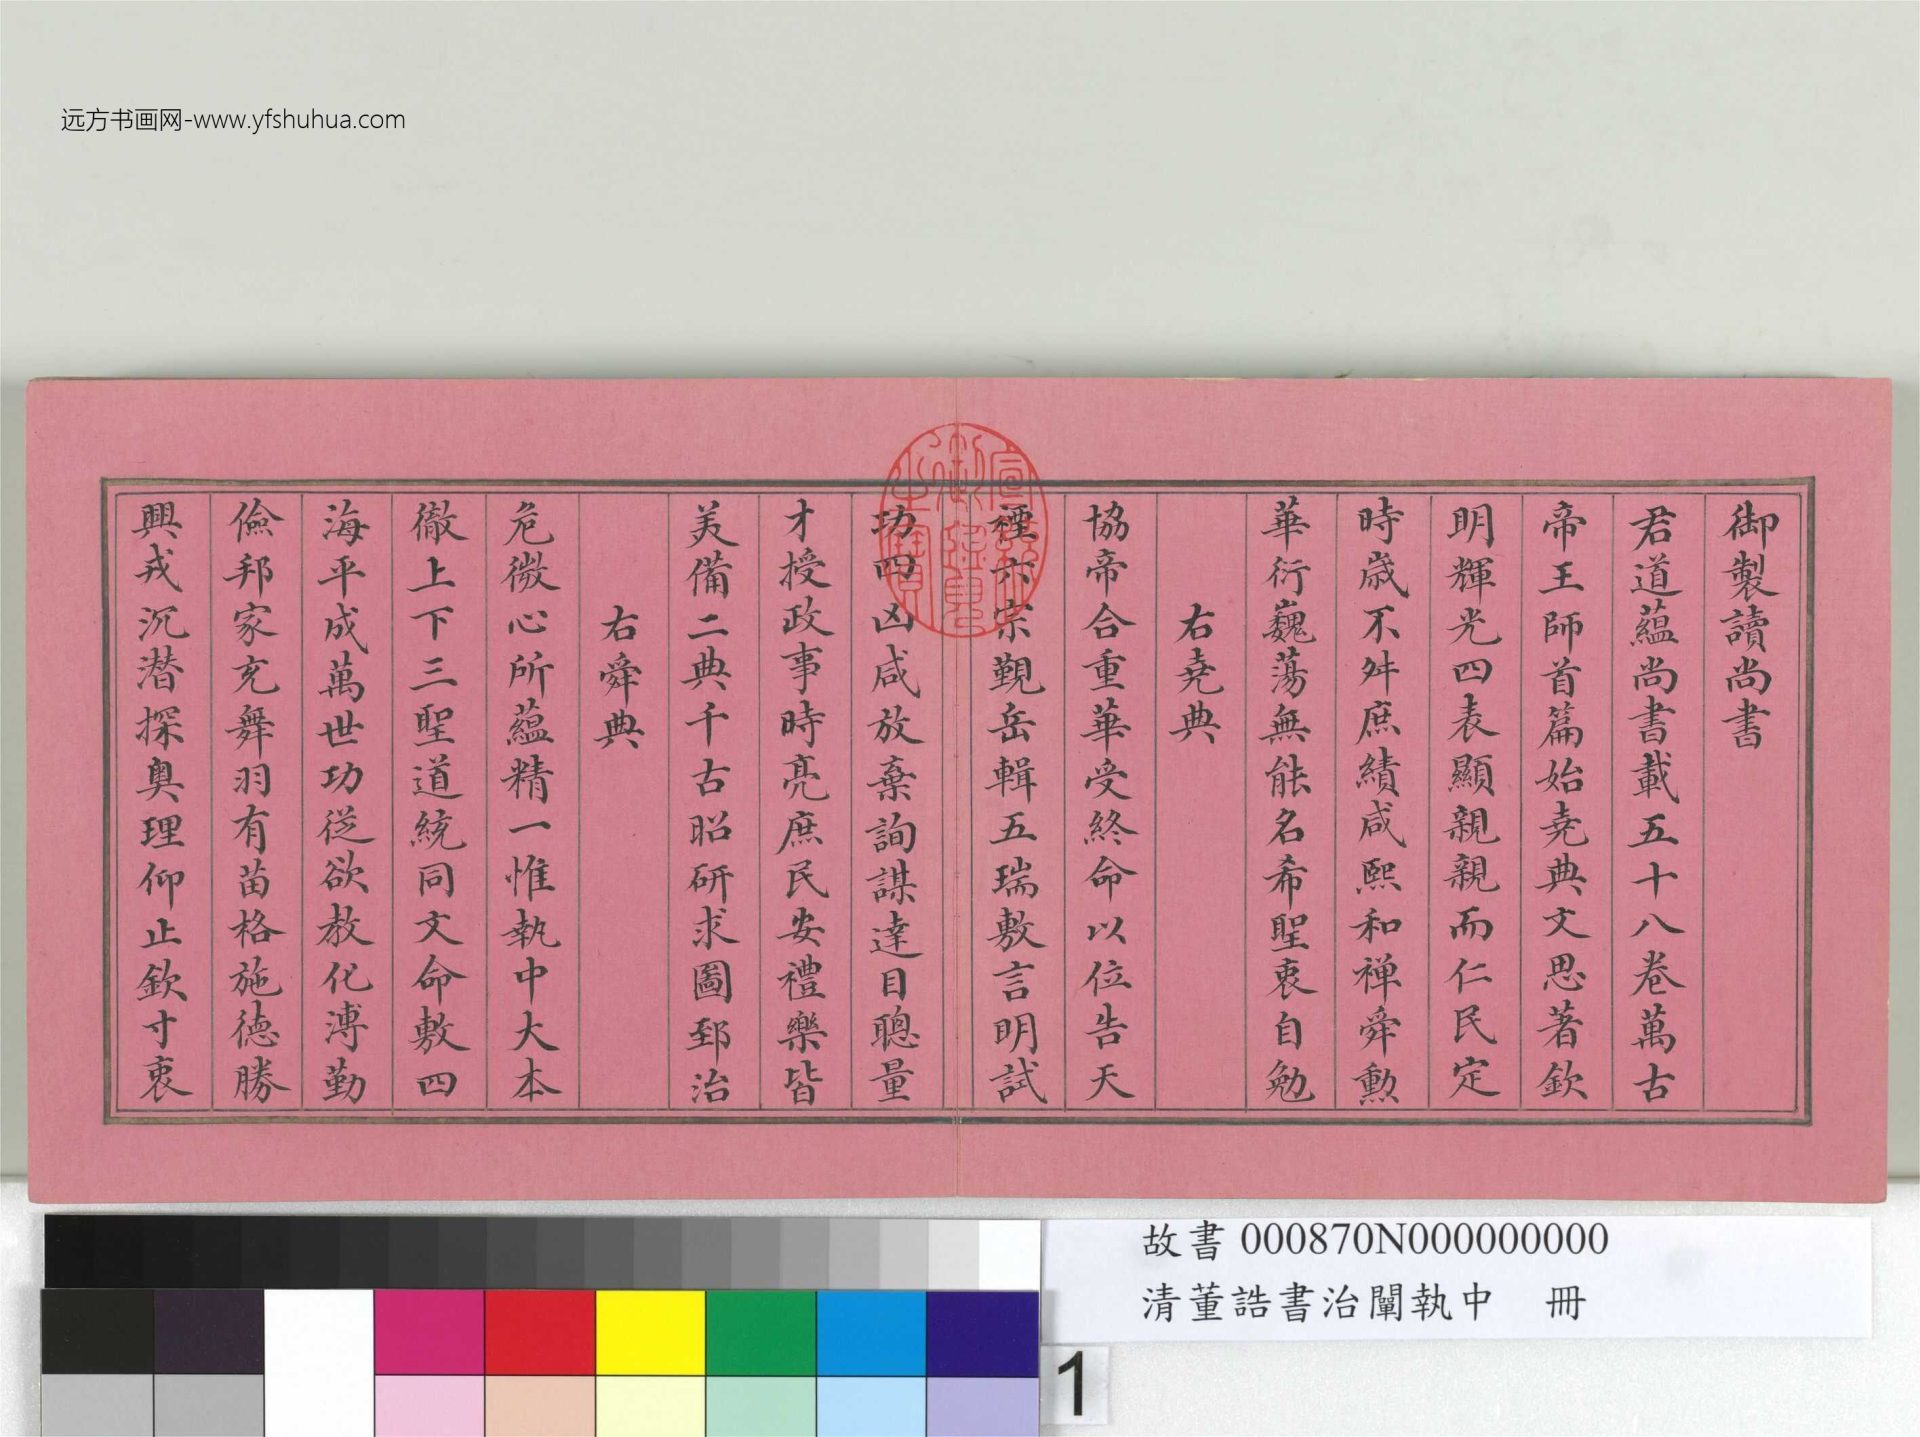 远方书画网-www.yfshuhua.com
御製讀尚書
君道蘊尚書載五十八卷萬古
帝王師首篇始堯典文思著欽
明輝光四表顯親親而仁民定
時歲不舛庶績咸熙和禅舜勲
華衍巍蕩無能名希聖衷自勉
右堯典
協帝合重華受終命以位告天
禋六宗覲岳輯五瑞敷言明試
功四凶咸放棄詢謀達目聰量
才授政事時亮庶民安禮樂皆
美備二典千古昭研求圖郅治
右舜典
危微心所蘊精一惟執中大本
徹上下三聖道統同文命敷四
海平成萬世功從欲教化溥勤
儉邦家充舞羽有苗格施德勝
興戎沉潜探奥理仰止欽寸衷
故書 000870N000000000
清董誥書治闡執中 冊
1